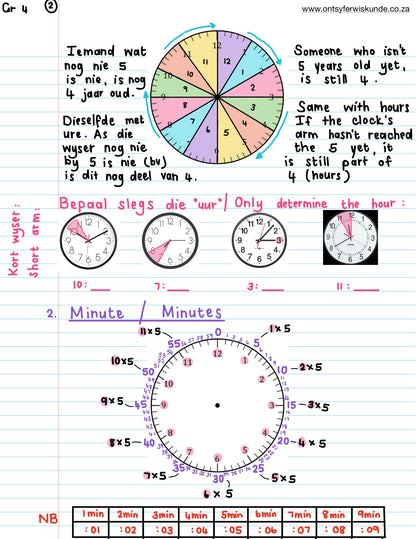 Gr 4 2
www.ontsyferwiskunde.co.za
Iemand wat
nog nie 5
is nie, is nog
4 jaar oud.
Dieselfde met
ure. As die
wyser nog nie
by 5 is nie (bv)
is dit nog deel van 4.
12 1 2 3 4 5 6 7 8 9 10 11
12 1 2 3 4 5 6 7 8 9 10 11
Someone who isn't
5 years old yet,
is still 4.
Same with hours
If the clock's
arm hasn't reached
the 5 yet, it
is still part of
4 (hours)
Bepaal slegs die "uur" / Only determine the hour:
Kort wyser:
Short arm:
10: __
7: __
3: __
11: __
2. Minute / Minutes
11x5
55
0
1x5
5
10x5
50
10
2x5
9x5
45
15
3x5
8x5
40
20
4x5
7x5
35
25
5x5
30
6x5
12 1 2 3 4 5 6 7 8 9 10 11
NB
1min 2min 3min 4min 5min 6min 7min 8min 9min
:01 :02 :03 :04 :05 :06 :07 :08 :09